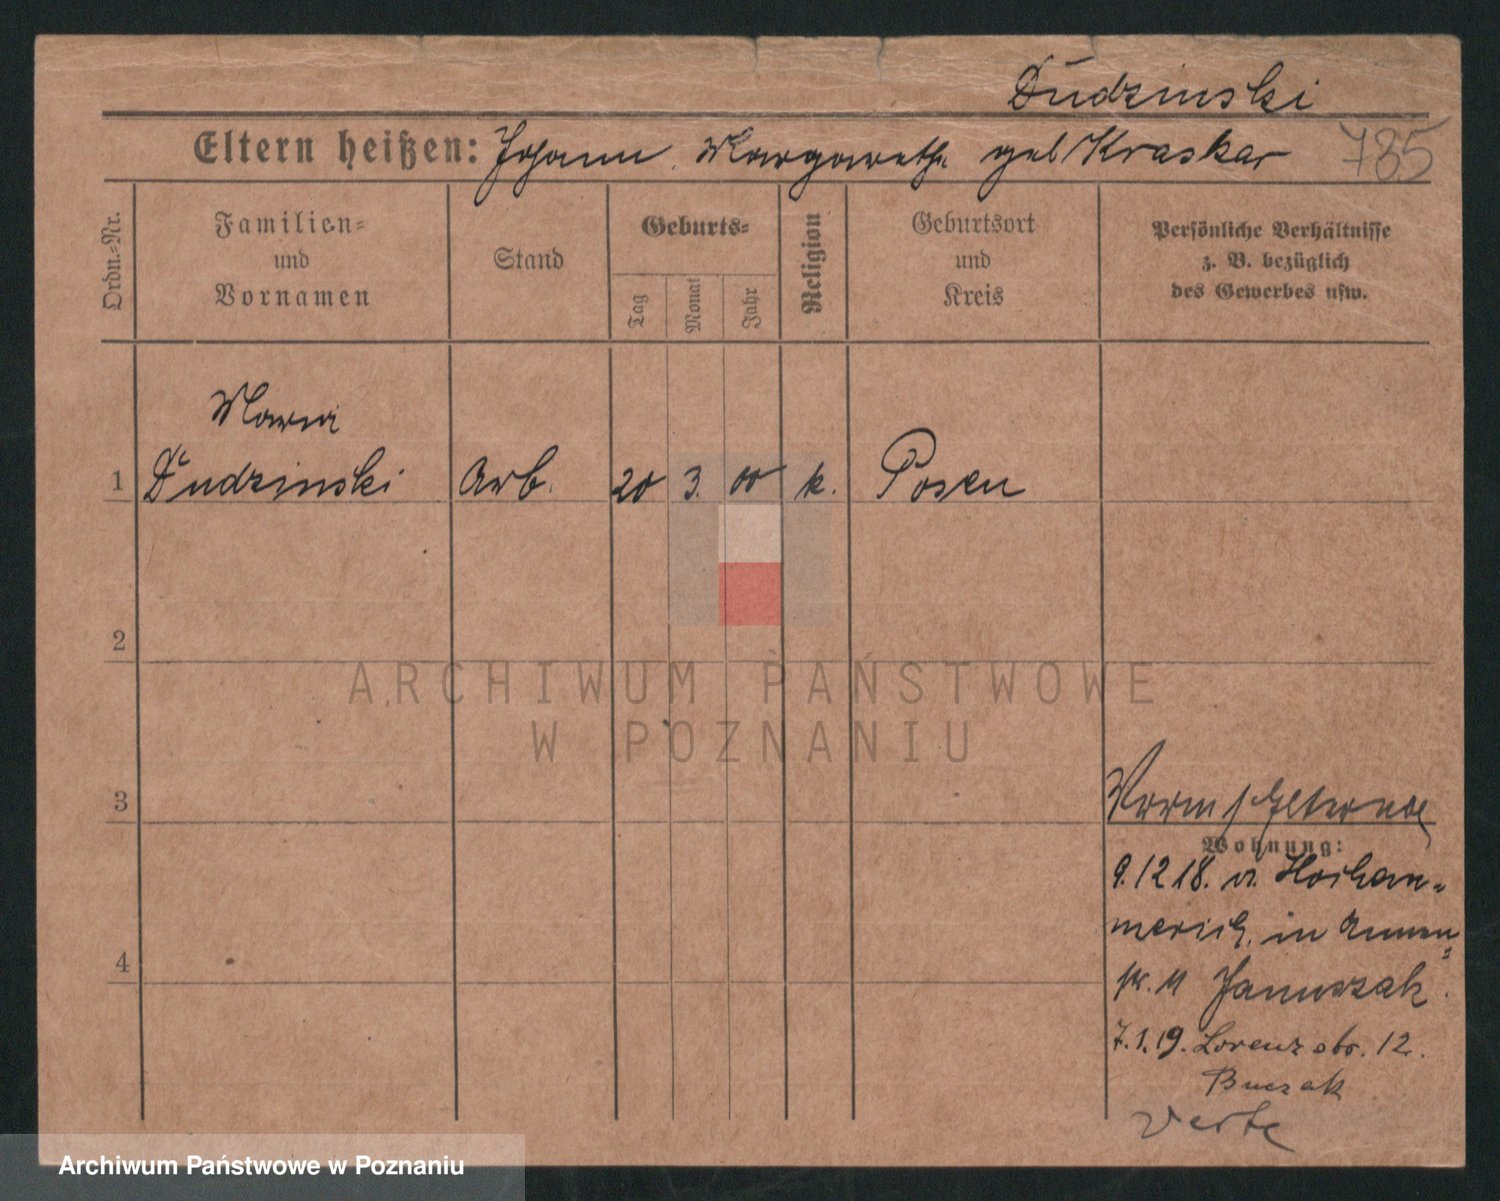 Dudzinski
Eltern heißen: Johann, Margareth. geb Kraskar
785
Ordn.-Nr.
Familien-
und
Vornamen
Stand
Geburts-
Tag
Monat
Jahr
Religion
Geburtsort
und
Kreis
Persönliche Verhältnisse
z. B. bezüglich
des Gewerbes usw.
Maria
1 Dudzinski Arb. 20 3. 00 k. Posen
2
ARCHIWUM PAŃSTWOWE
W POZNANIU
3
Wohnung:
9.12 18. v.
in
4
str. 11 Januszak.
7.1.19. Lorenzstr. 12.
Buczak
verte
Archiwum Państwowe w Poznaniu